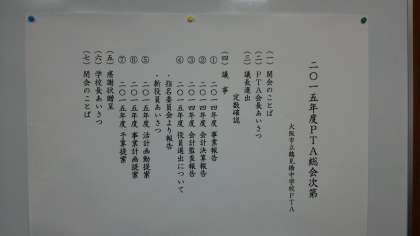 二〇一五年度PTA総会次第
大阪市立鶴見橋中学校PTA
(一) 開会のことば
(二) PTA会長あいさつ
(三) 議長選出
定数確認
(四) 議事
① 二〇一四年度 事業報告
② 二〇一四年度 会計決算報告
③ 二〇一四年度 会計監査報告
④ 二〇一五年度 役員選出について
・指名委員会より報告
・新役員あいさつ
⑤ 二〇一五年度 活動計画提案
⑥ 二〇一五年度 事業計画提案
⑦ 二〇一五年度 予算提案
(五) 感謝状贈呈
(六) 学校長あいさつ
(七) 閉会のことば